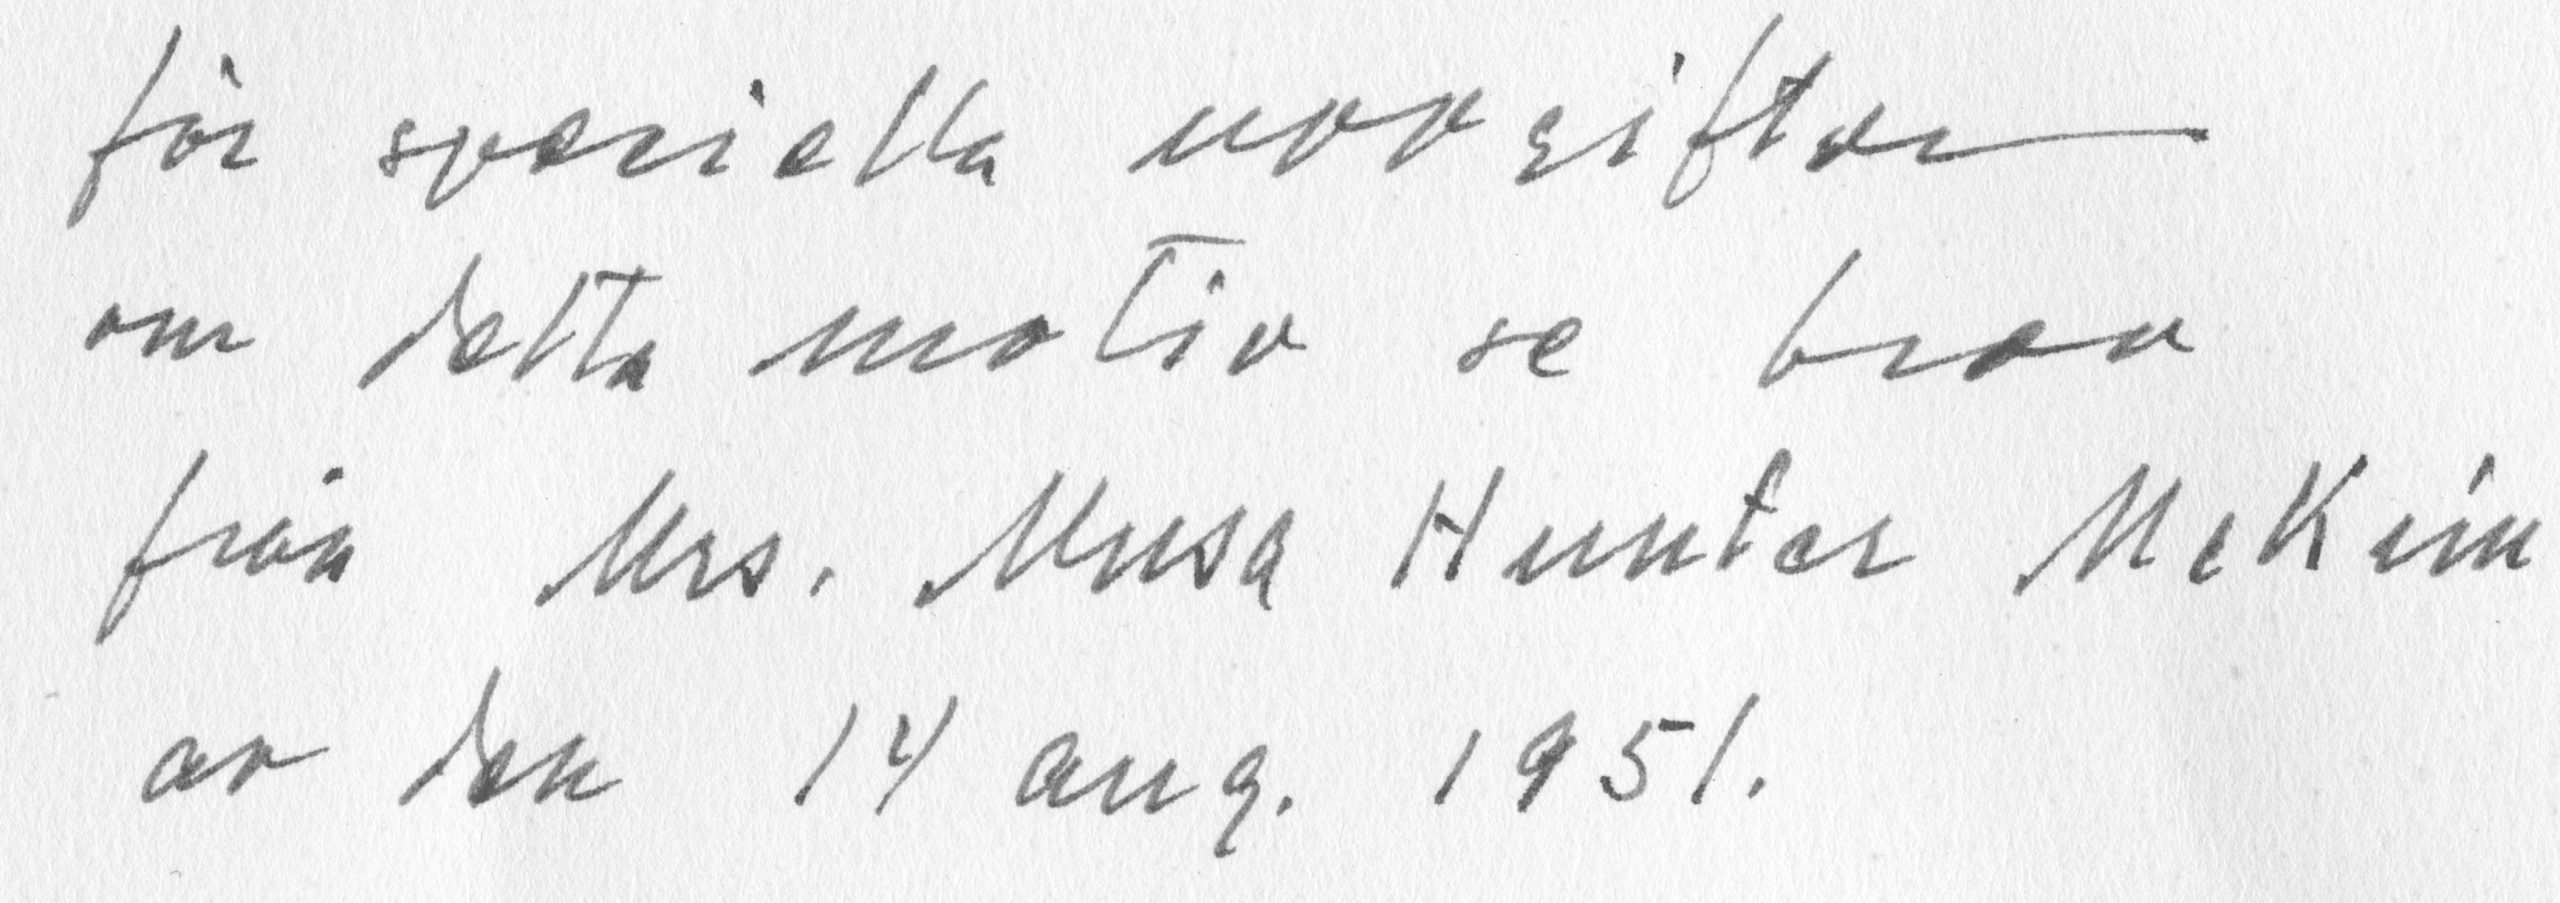 för speciella uppgifter
om detta motiv se brev
från Mrs. Musa Hunter McKim
av den 14 aug. 1951.